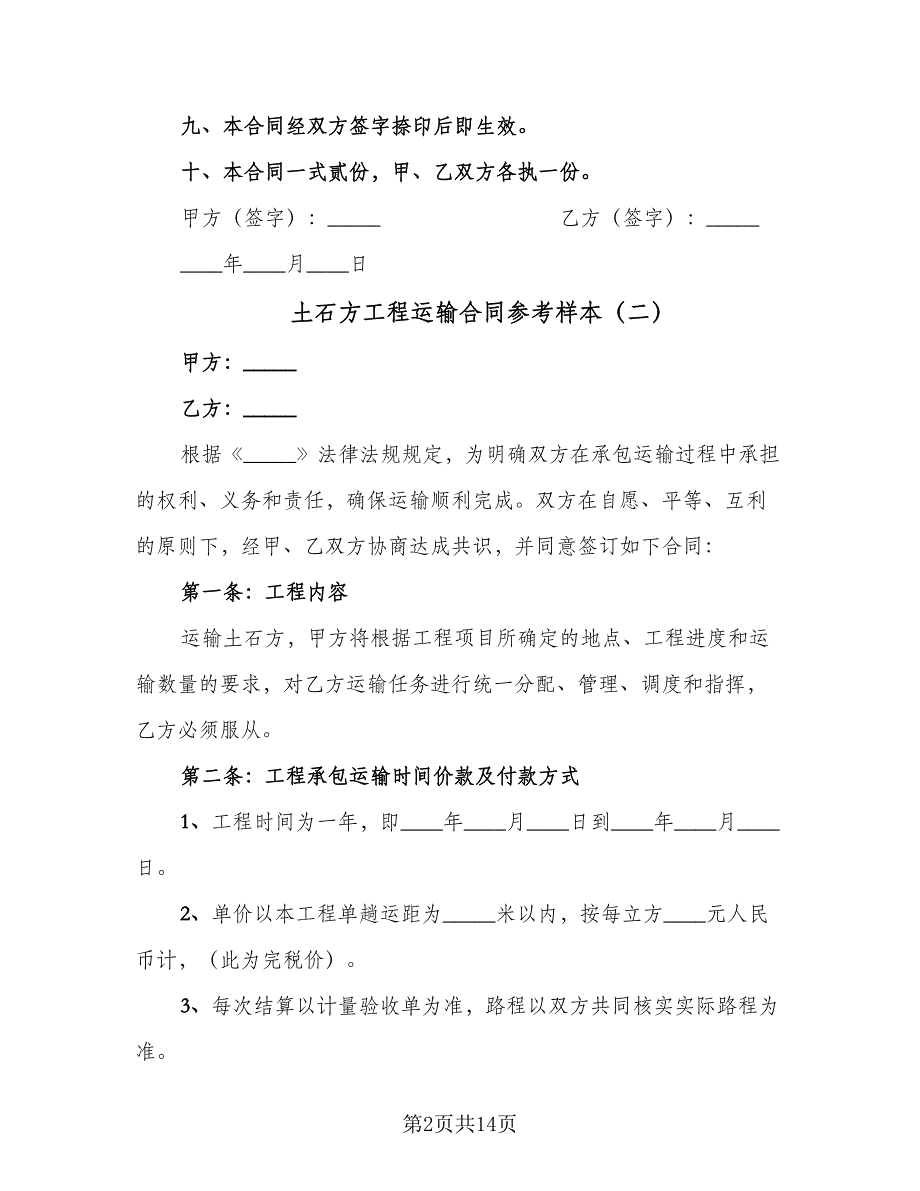 九、本合同经双方签字捺印后即生效。
十、本合同一式贰份，甲、乙双方各执一份。
甲方（签字）：_____ 乙方（签字）：_____
____年____月____日
土石方工程运输合同参考样本（二）
甲方：_____
乙方：_____
根据《_____》法律法规规定，为明确双方在承包运输过程中承担
的权利、义务和责任，确保运输顺利完成。双方在自愿、平等、互利
的原则下，经甲、乙双方协商达成共识，并同意签订如下合同：
第一条：工程内容
运输土石方，甲方将根据工程项目所确定的地点、工程进度和运
输数量的要求，对乙方运输任务进行统一分配、管理、调度和指挥，
乙方必须服从。
第二条：工程承包运输时间价款及付款方式
1、工程时间为一年，即____年____月____日到____年____月____
日。
2、单价以本工程单趟运距为_____米以内，按每立方____元人民
币计，（此为完税价）。
3、每次结算以计量验收单为准，路程以双方共同核实实际路程为
准。
第2页共14页